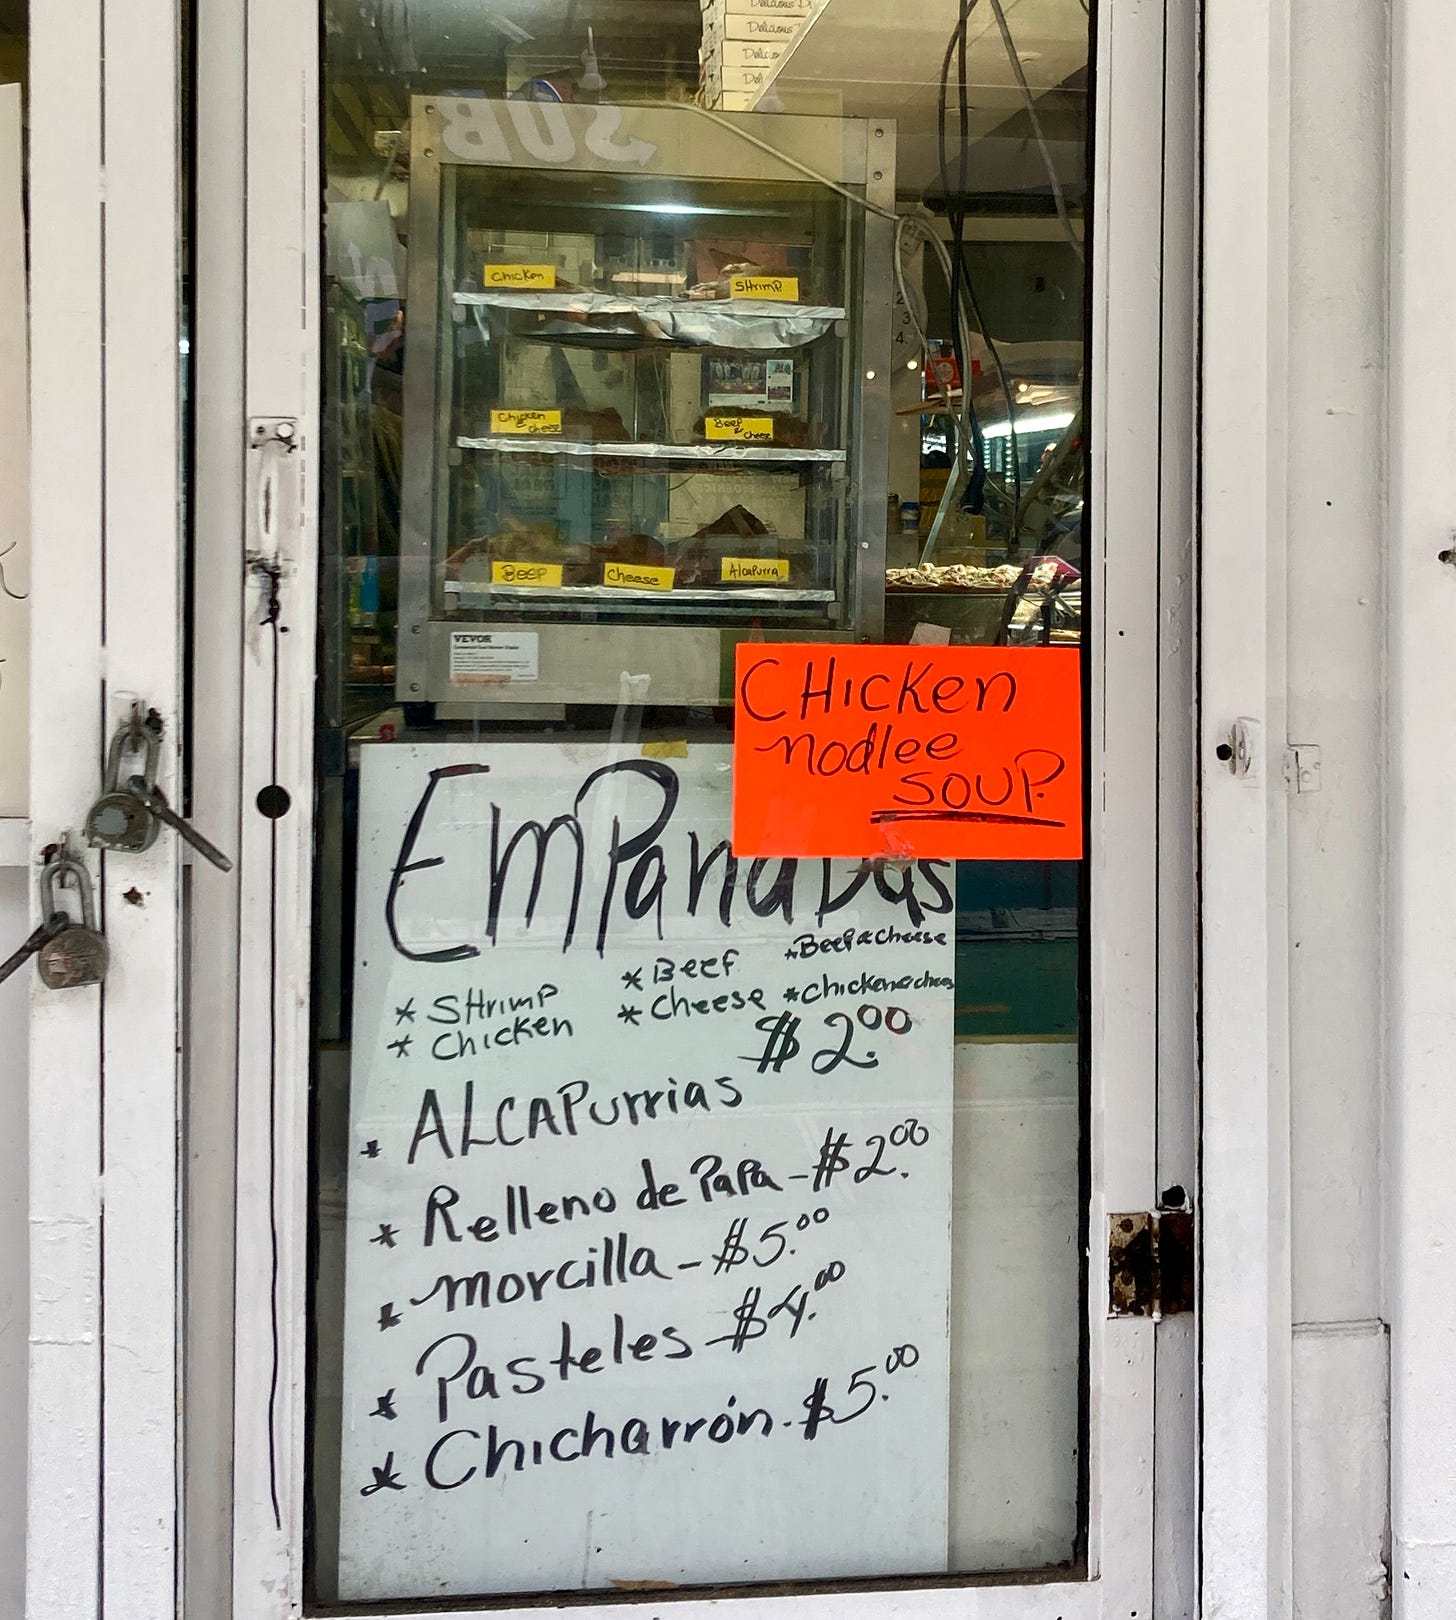 Delicious
Delicious
SUB
Chicken
SHrimP.
2
3
4.
Chicken
cheese
Beef
& Cheese
Beef
Cheese
Alcapurria
VEVOR
CHicken
nodlee
SOUP.
EmPanadas
* SHrimP
* Chicken
* Beef
* Cheese
*Beef & Cheese
*Chicken & chees
$2.00
* ALCAPurrias
* Relleno de PaPa - $2.00
* morcilla - $5.00
* Pasteles - $4.00
* Chicharrón. $5.00